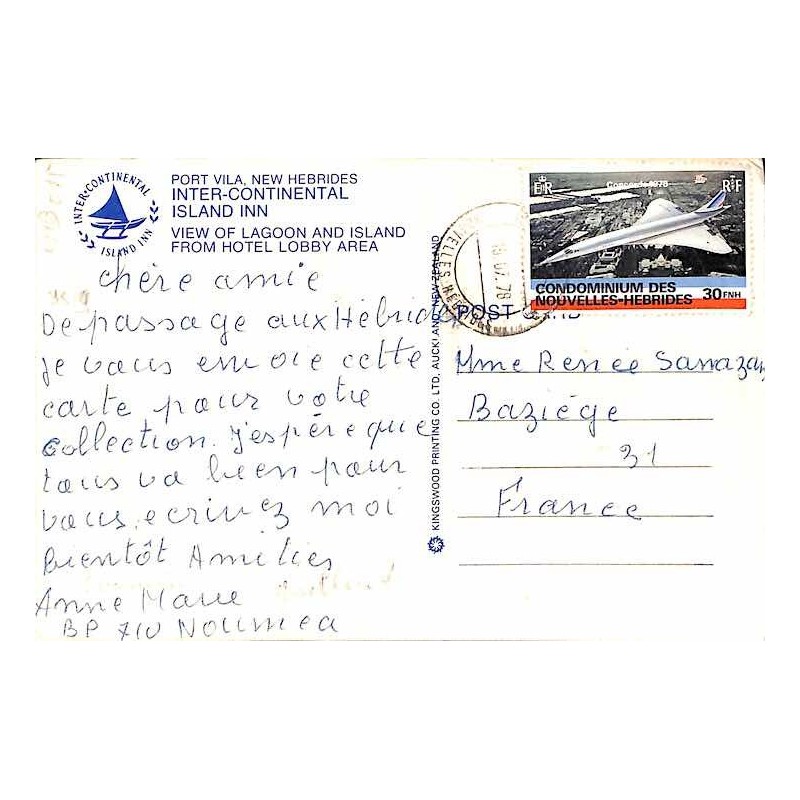 INTER•CONTINENTAL
ISLAND INN
PORT VILA, NEW HEBRIDES
INTER-CONTINENTAL
ISLAND INN
VIEW OF LAGOON AND ISLAND
FROM HOTEL LOBBY AREA
chère amie
De passage aux Hébrides
je vous envoie cette
carte pour votre
collection. J'espère que
tous va been pour
vous, ecrivez moi
bientôt Amitiés
Anne Marie
BP 710 Noumea
KINGSWOOD PRINTING CO. LTD, AUCKLAND, NEW ZEALAND
EIIR
Concorde 1976
RF
CONDOMINIUM DES
NOUVELLES-HEBRIDES 30 FNH
POST CARD
Mme Renée Sanazan
Baziége
31
France